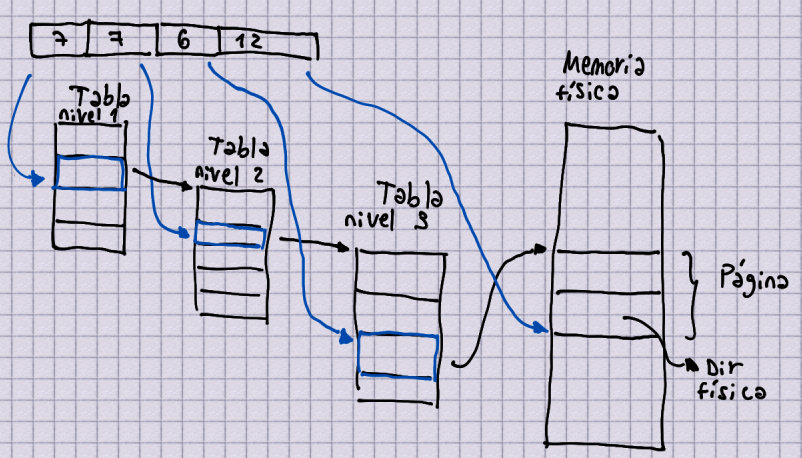 7 7 6 12
Tabla
nivel 1
Tabla
nivel 2
Tabla
nivel 3
Memoria
física
Página
Dir
física